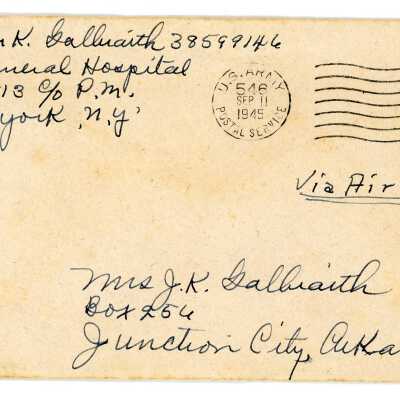 n K. Galbraith 38599146
neral Hospital
13 c/o P.M.
york, N.Y.
U.S. ARMY
546
SEP 11
1945
POSTAL SERVICE
Via Air
Mrs J.K. Galbraith
Box 256
Junction City, Arka